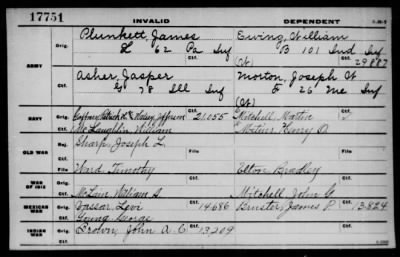 17751 INVALID DEPENDENT
ARMY
Orig. Plunkett, James Ewing, William
L 62 Pa Inf B 101 Ind Inf
(W) 29887
Ctf. Asher, Jasper Morton, Joseph W
G 78 Ill Inf F 26 Me Inf
Ctf.
NAVY
Orig. Jefferson 21,055 Mitchell, Martin
Ctf. McLaughlin, William Henry D.
OLD WAR
Rej. Sharp, Joseph L.
File File
Ward Timothy Elton Bradley
WAR OF 1812
Ctf. McLain William A. Mitchell John G
MEXICAN WAR
Orig. Vassar Levi 14,686 Bruster, James P. 13,824
Ctf. Young George
INDIAN WAR
Orig. Brown, John A. C. 13209
Ctf. Ctf.